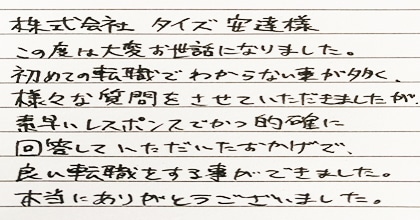 株式会社 タイズ 安達様
この度は大変お世話になりました。
初めての転職でわからない事が多く、
様々な質問をさせていただきましたが、
素早いレスポンスでかつ的確に
回答していただいたおかげで、
良い転職をする事ができました。
本当にありがとうございました。